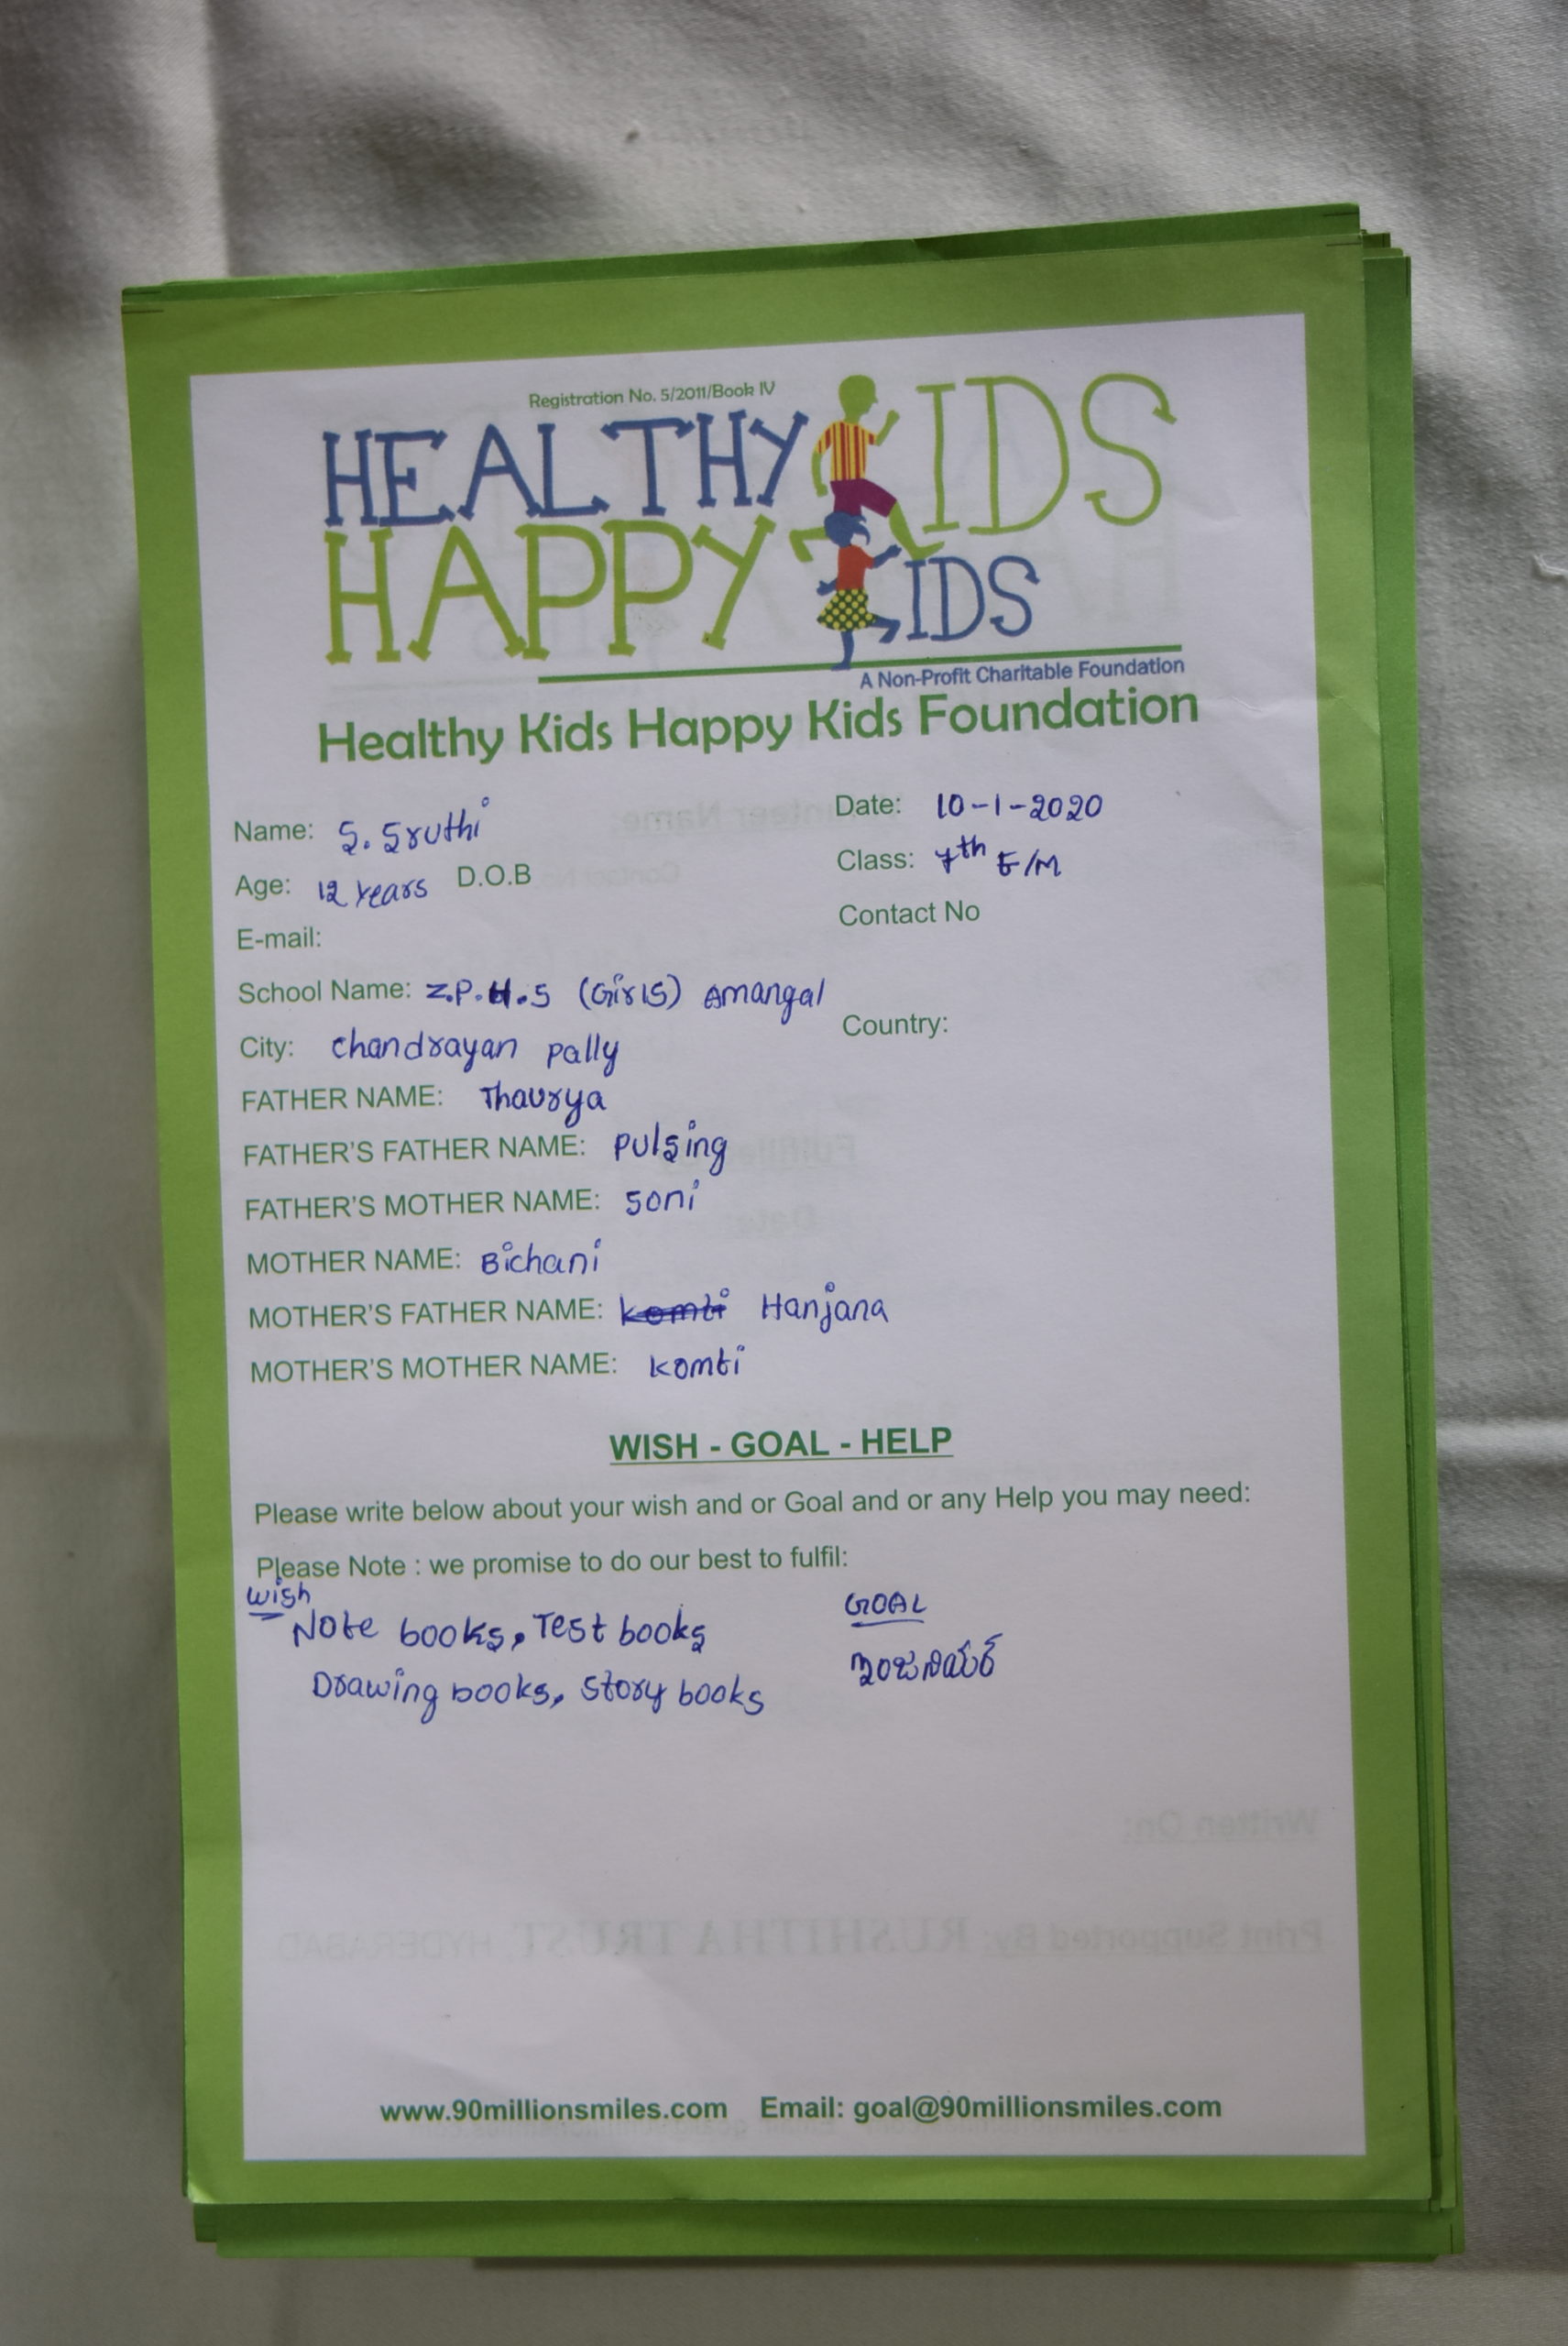 Registration No. 5/2011/Book IV
HEALTHY KIDS
HAPPY KIDS
A Non-Profit Charitable Foundation
Healthy Kids Happy Kids Foundation
Name: S. Sruthi Date: 10-1-2020
Age: 12 years D.O.B Class: 7th E/M
E-mail: Contact No
School Name: Z.P.H.S (Girls) Amangal
City: chandrayan pally Country:
FATHER NAME: Thaurya
FATHER'S FATHER NAME: Pulsing
FATHER'S MOTHER NAME: soni
MOTHER NAME: Bichani
MOTHER'S FATHER NAME: komti Hanjana
MOTHER'S MOTHER NAME: komti
WISH - GOAL - HELP
Please write below about your wish and or Goal and or any Help you may need:
Please Note : we promise to do our best to fulfil:
wish
Note books, Test books
Drawing books, Story books
GOAL
ఇంజనియర్
Written On:
Print Supported By: RUSHITHA TRUST, HYDERABAD
www.90millionsmiles.com Email: goal@90millionsmiles.com